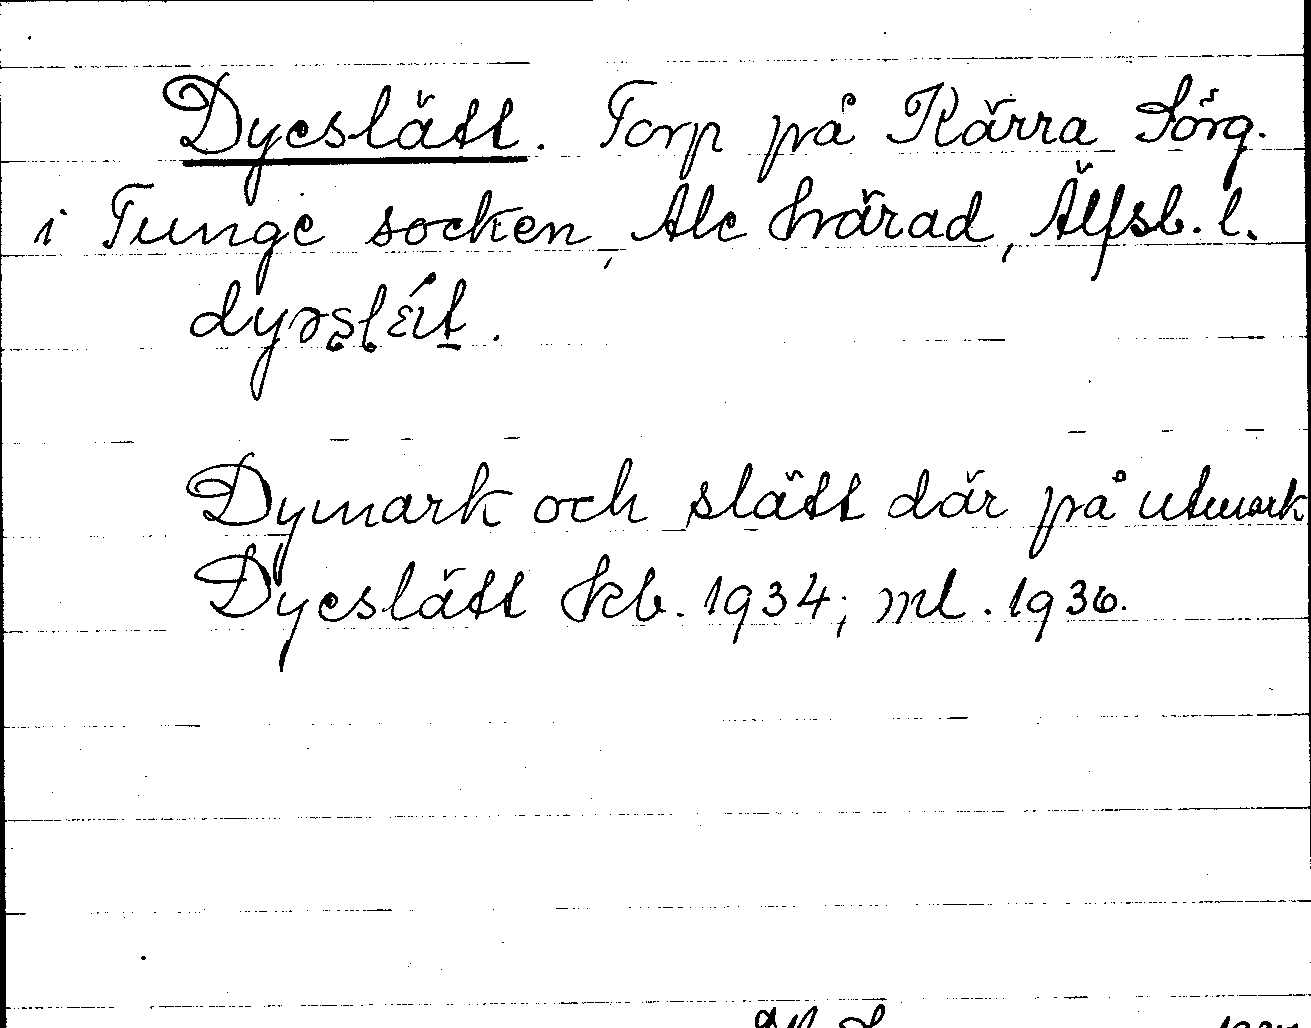 Dyeslätt. Torp på Kärra Sörg.
i Tunge socken, Ale härad, Älfsb. l.
dyəslǽt.
Dymark och slätt där på utmark
Dyeslätt kb. 1934; ml. 1936.